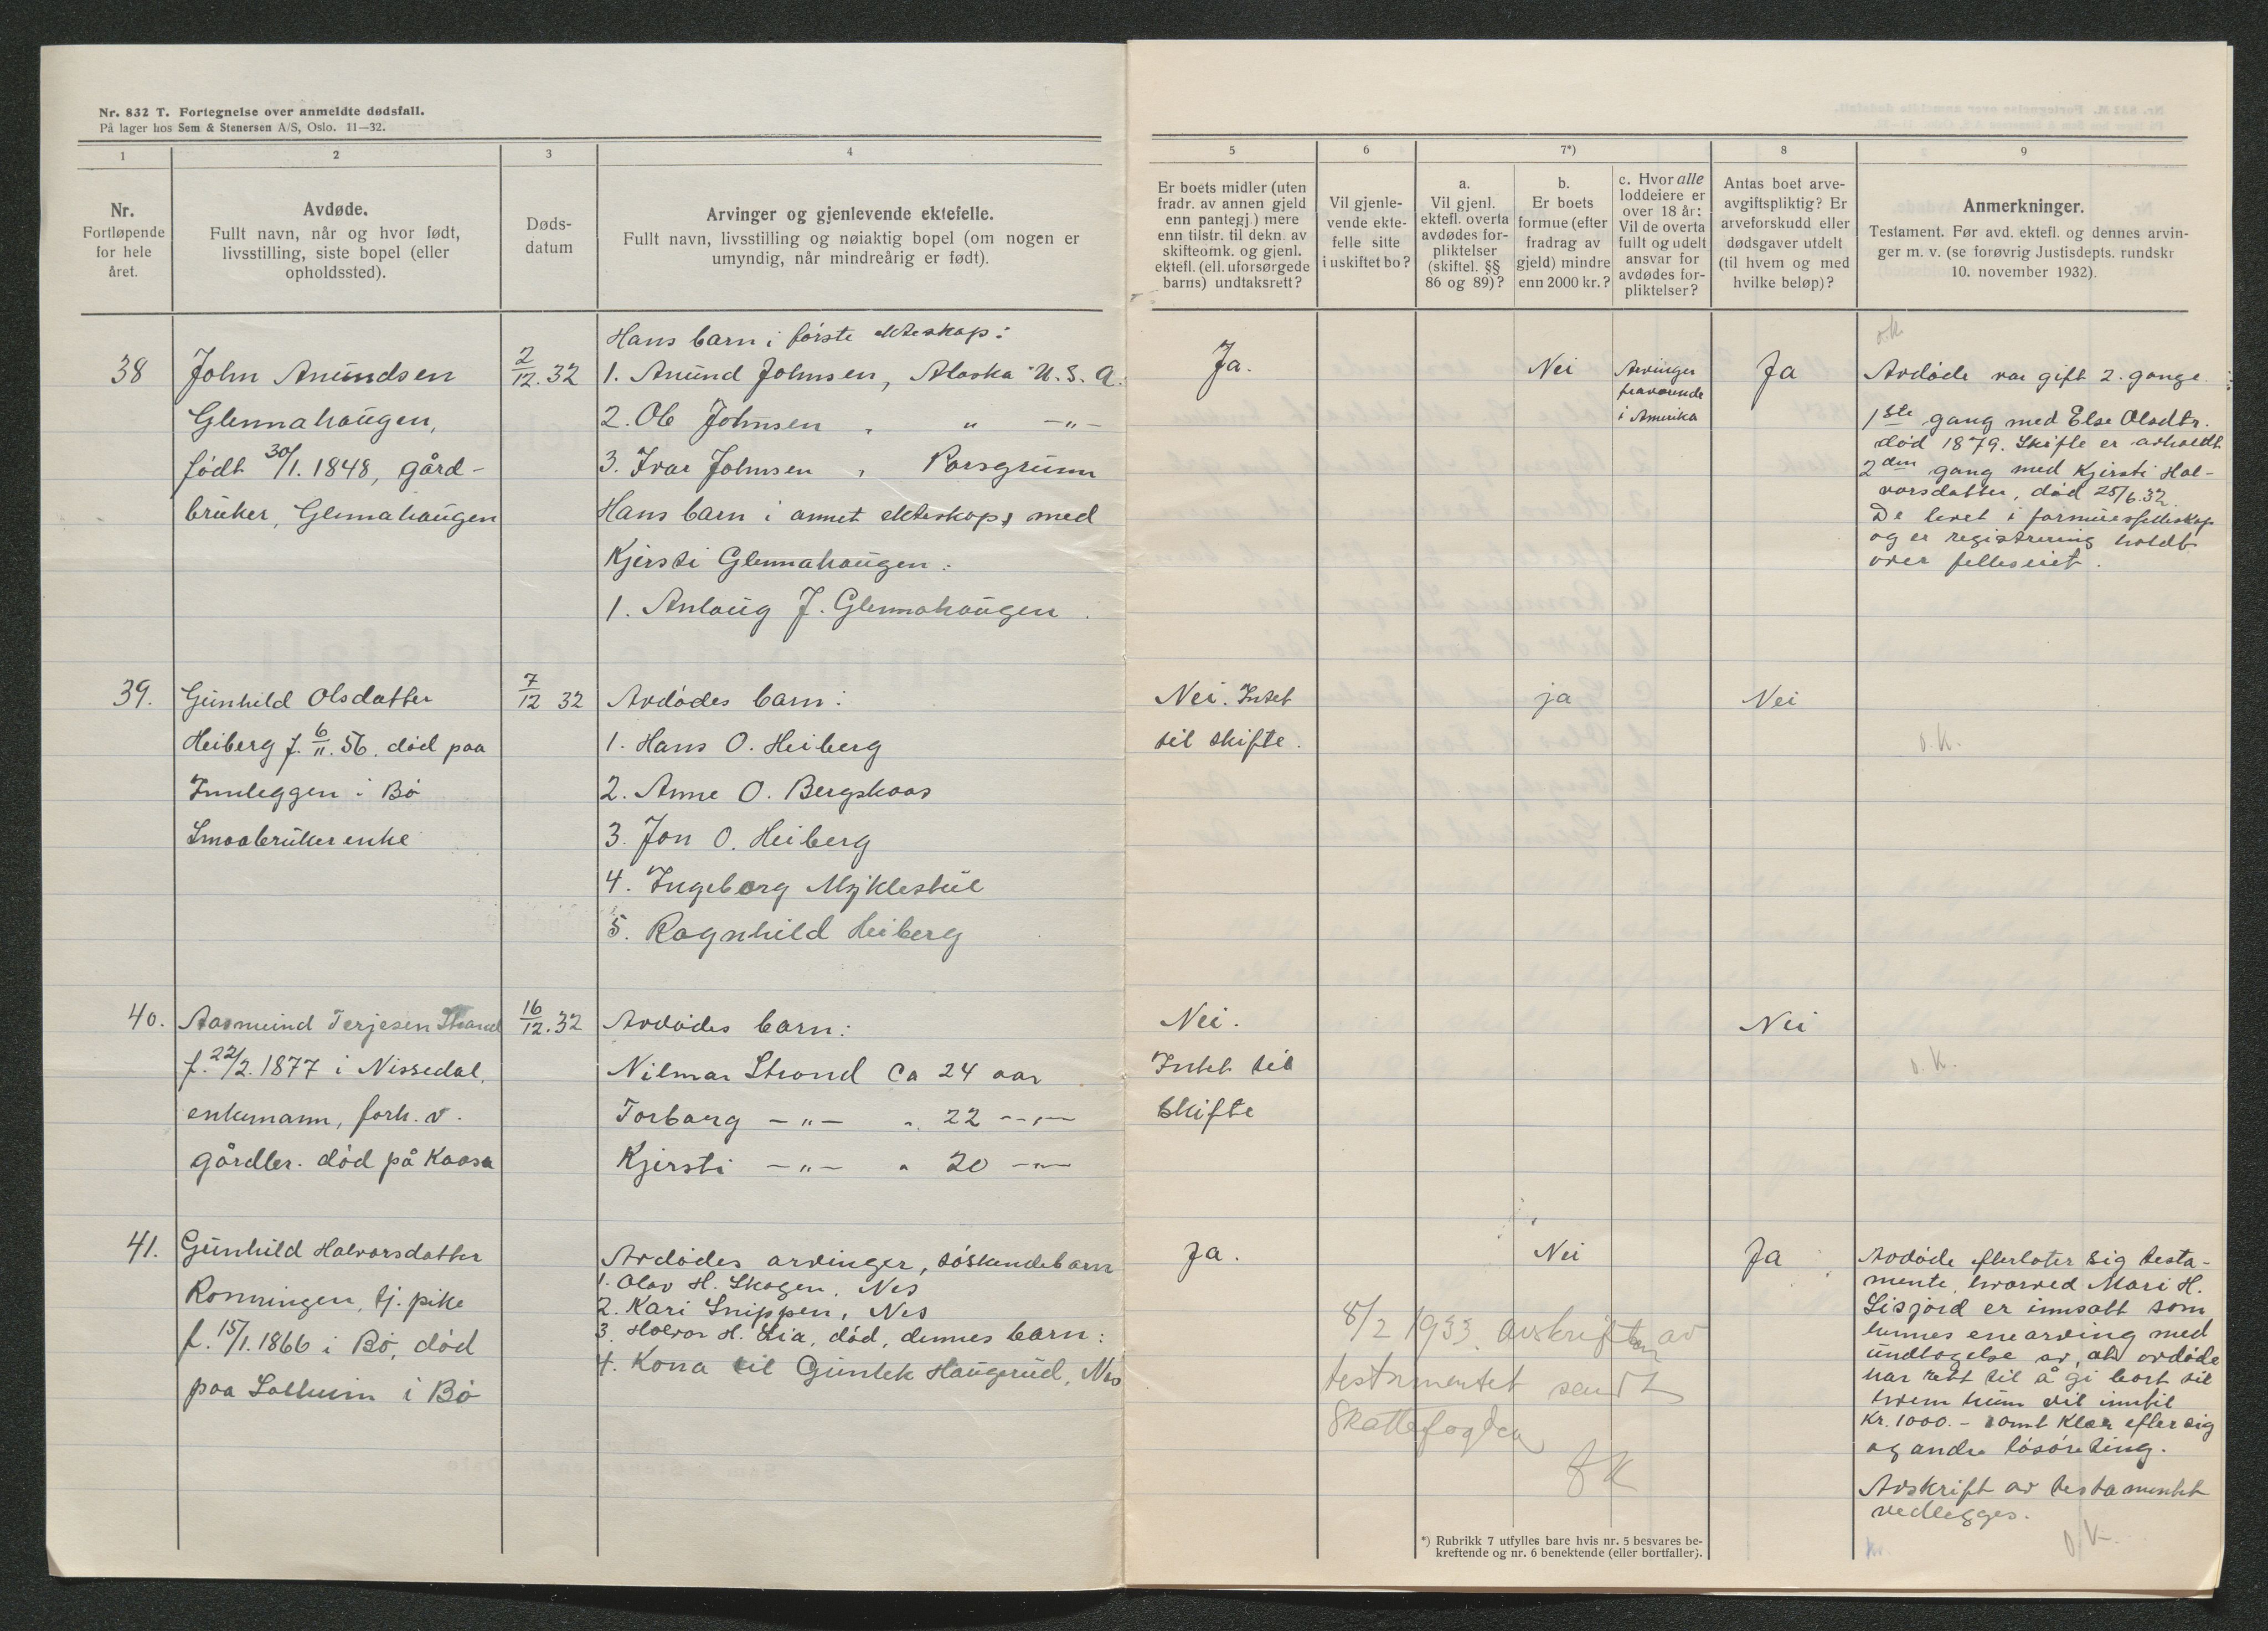 Nr. 832 T. Fortegnelse over anmeldte dødsfall.
På lager hos Sem & Stenersen A/S, Oslo. 11—32.
1
2
3
4
Nr.
Fortløpende
for hele
året.
Avdøde.
Fullt navn, når og hvor født,
livsstilling, siste bopel (eller
opholdssted).
Døds-
datum
Arvinger og gjenlevende ektefelle.
Fullt navn, livsstilling og nøiaktig bopel (om nogen er
umyndig, når mindreårig er født).
38
John Anundsen
Glennahaugen,
født 30/1. 1848, gård-
bruker, Glennahaugen
2/12. 32
Hans barn i første ekteskap:
1. Anund Johnsen, Alaska U.S.A.
2. Ole Johnsen, " —"—
3. Ivar Johnsen, Porsgrunn
Hans barn i annet ekteskap, med
Kjersti Glennahaugen:
1. Anlaug J. Glennahaugen.
39.
Gunhild Olsdatter
Heiberg f. 6/11. 56. død paa
Innleggen i Bø
Smaabruker enke
7/12 32
Avdødes barn:
1. Hans O. Heiberg
2. Anne O. Bergskaas
3. Jon O. Heiberg
4. Ingeborg Myklestul
5. Ragnhild Heiberg
40.
Aasmund Terjesen Strand
f. 22/2. 1877 i Nissedal,
enkemann, forh. v.
gårdbr. død på Kaasa
16/12. 32
Avdødes barn:
Nilmar Strond ca 24 aar
Torbarg —"— " 22 —"—
Kjersti —"— " 20 —"—
41.
Gunhild Halvorsdatter
Rønningen, tj. pike
f. 15/1. 1866 i Bø, død
paa Solheim i Bø
Avdødes arvinger, søskendebarn
1. Olav H. Skogen, Nes
2. Kari Snippen, Nes
3. Halvor H. Lia, død, dennes barn:
4. Kona til Gunlek Haugerud, Nes
5
6
7*)
8
9
Er boets midler (uten
fradr. av annen gjeld
enn pantegj.) mere
enn tilstr. til dekn. av
skifteomk. og gjenl.
ektefl. (ell. uforsørgede
barns) undtaksrett?
Vil gjenle-
vende ekte-
felle sitte
i uskiftet bo?
a.
Vil gjenl.
ektefl. overta
avdødes for-
pliktelser
(skiftel. §§
86 og 89)?
b.
Er boets
formue (efter
fradrag av
gjeld) mindre
enn 2000 kr.?
c. Hvor alle
loddeiere er
over 18 år:
Vil de overta
fullt og udelt
ansvar for
avdødes for-
pliktelser?
Antas boet arve-
avgiftspliktig? Er
arveforskudd eller
dødsgaver utdelt
(til hvem og med
hvilke beløp)?
Anmerkninger.
Testament. Før avd. ektefl. og dennes arvin-
ger m. v. (se forøvrig Justisdepts. rundskr
10. november 1932).
Ja.
Nei
Arvinger
fraværende
i Amerika
Ja
o.k.
Avdøde var gift 2. gange.
1ste gang med Else Olsdtr.
død 1879. Skifte er avholdt
2den gang med Kjersti Hal-
vorsdatter, død 25/6.32.
De levet i formuesfelleskap
og er registrering holdt
over felleseiet.
Nei. Intet
til skifte.
ja
Nei
o.k.
Nei.
Intet til
skifte
Nei
o.k.
Ja.
Nei
Ja
8/2 1933. avskriften av
testamentet sendt
Skattefogden
Avdøde efterlater sig testa-
mente, hvorved Mari H.
Lisjord er innsatt som
hennes enearving med
undtagelse av, at avdøde
har rett til å gi bort til
hvem hun vil inntil
Kr. 1000.- samt klær efter sig
og andre løsøreting.
Avskrift av testamentet
vedlegges.
o.k.
*) Rubrikk 7 utfylles bare hvis nr. 5 besvares be-
kreftende og nr. 6 benektende (eller bortfaller).